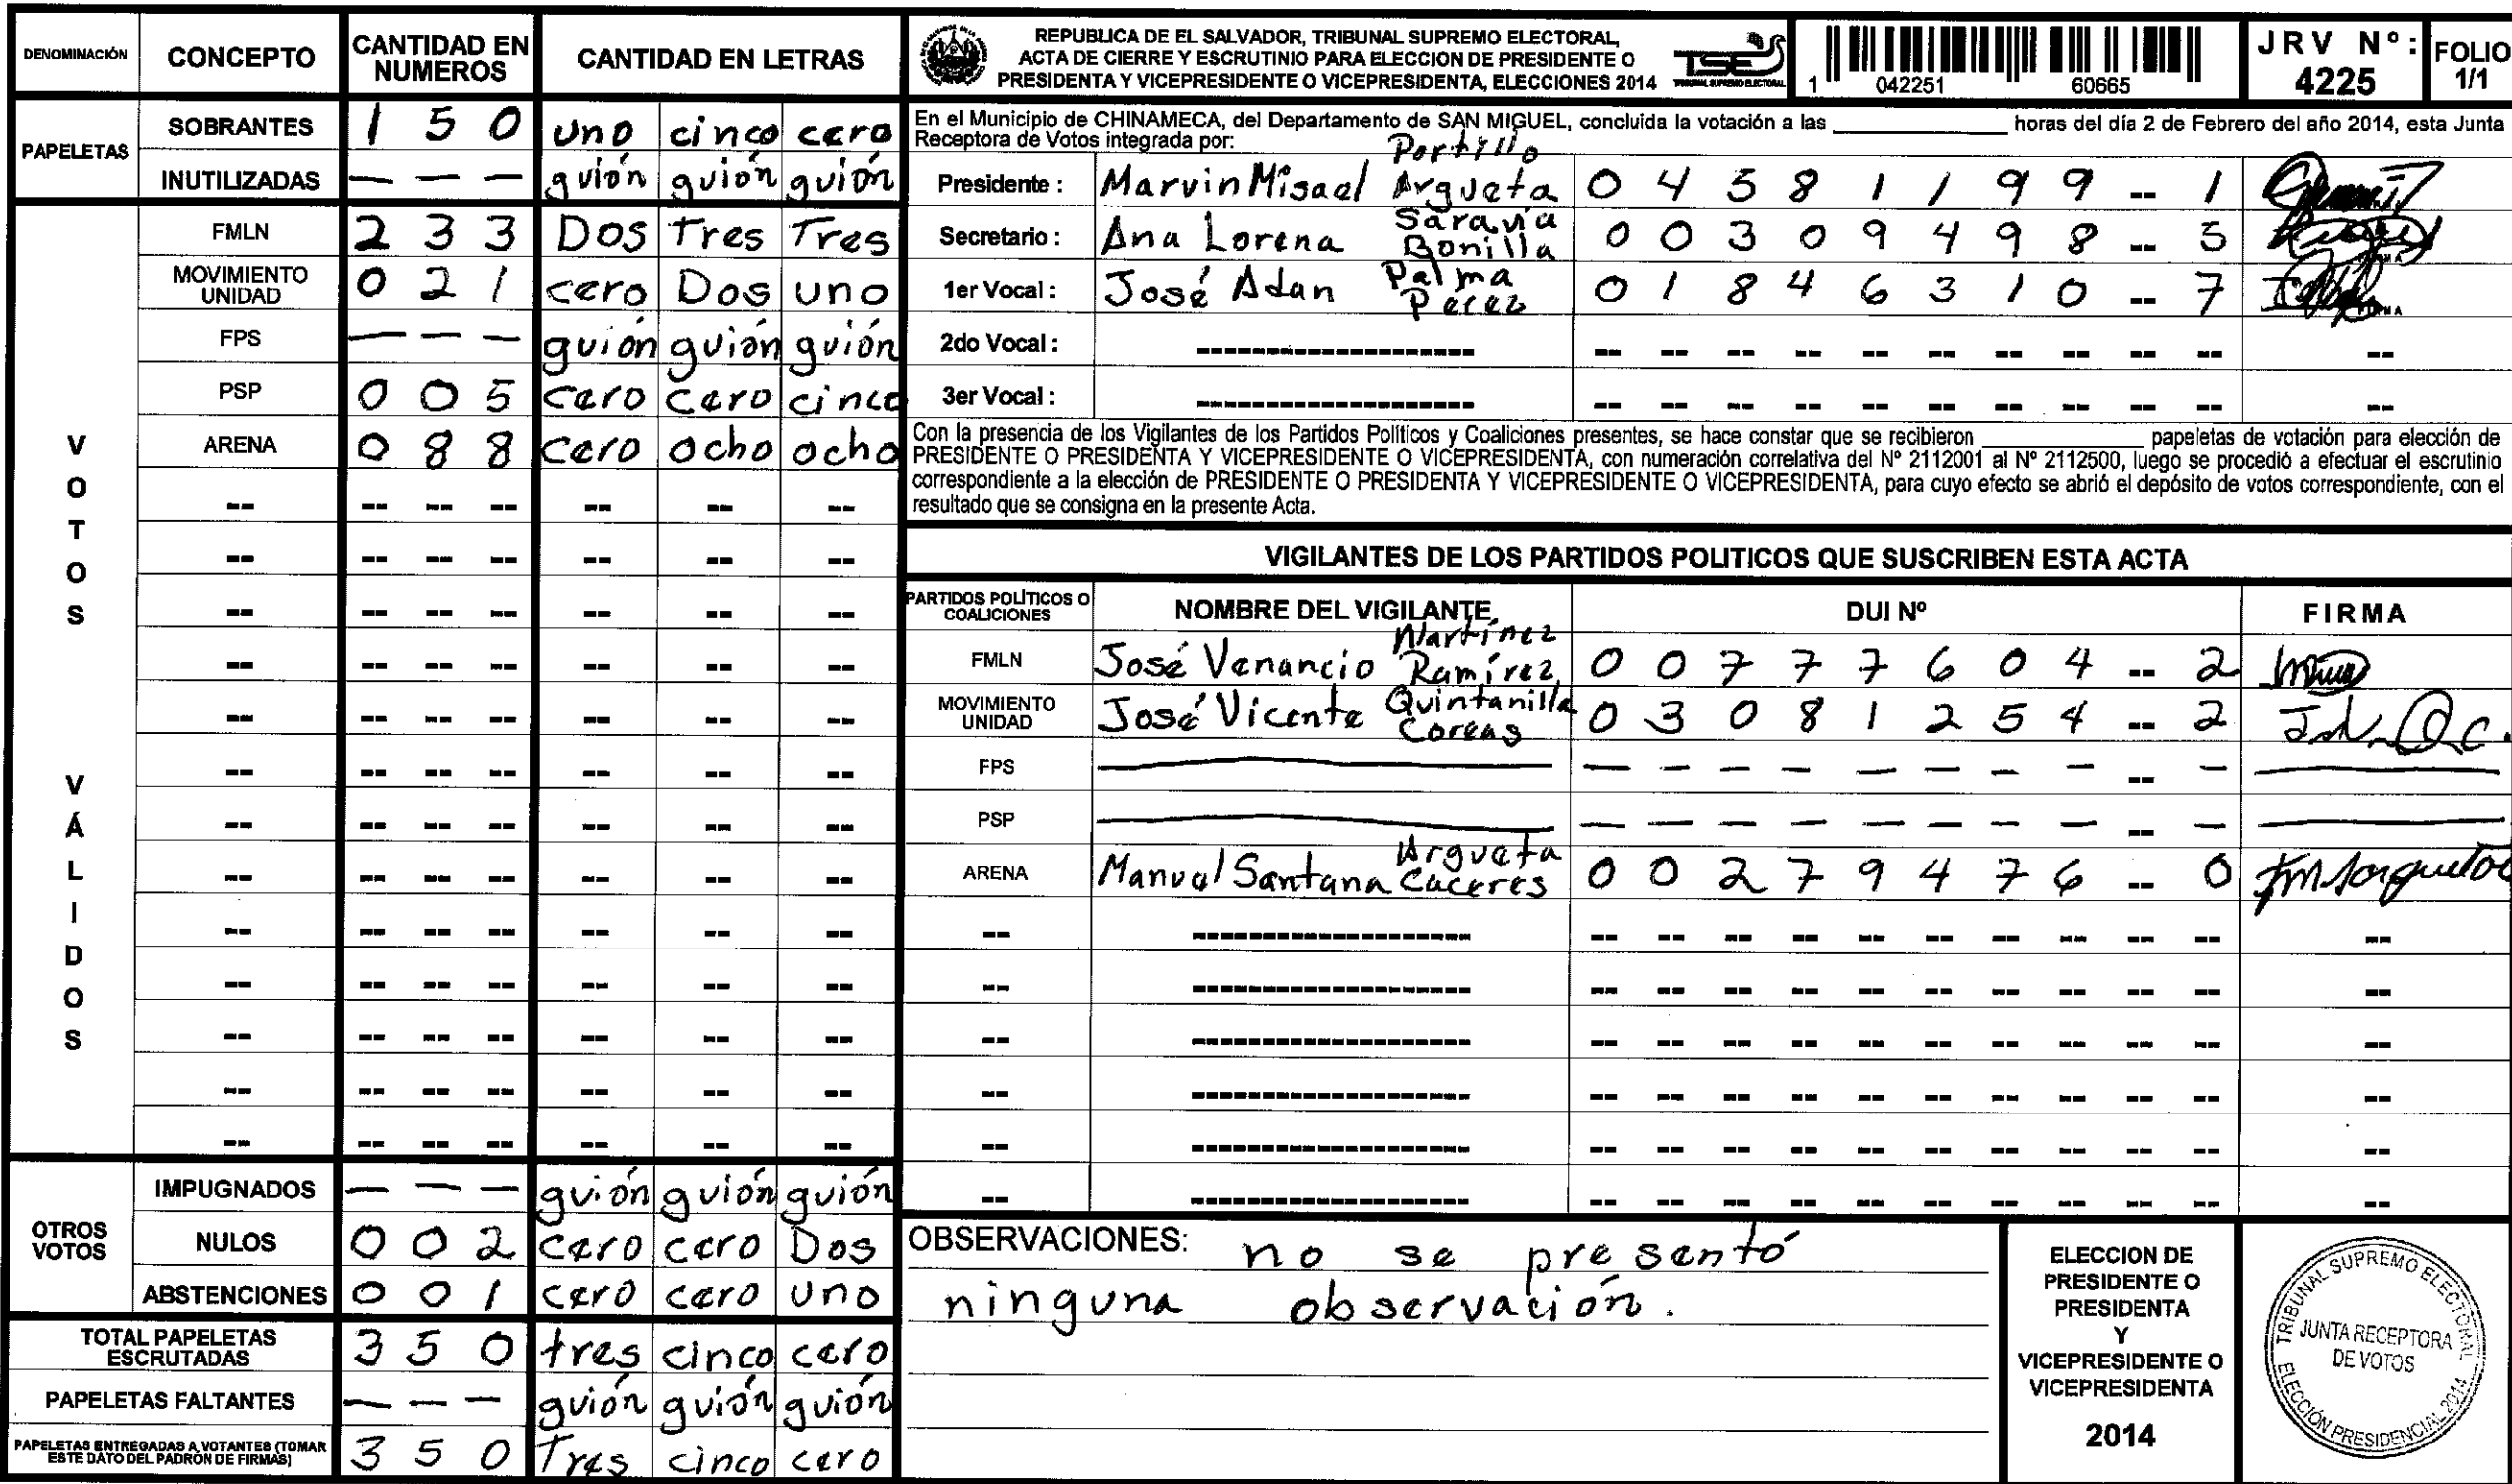 DENOMINACIÓN CONCEPTO CANTIDAD EN NUMEROS CANTIDAD EN LETRAS
PAPELETAS
SOBRANTES 1 5 0 uno cinco cero
INUTILIZADAS — — — guión guión guión
VOTOS VÁLIDOS
FMLN 2 3 3 Dos Tres Tres
MOVIMIENTO UNIDAD 0 2 1 cero Dos uno
FPS — — — guión guión guión
PSP 0 0 5 cero cero cinco
ARENA 0 8 8 cero ocho ocho
-- -- -- -- -- -- --
-- -- -- -- -- -- --
-- -- -- -- -- -- --
-- -- -- -- -- -- --
-- -- -- -- -- -- --
-- -- -- -- -- -- --
-- -- -- -- -- -- --
-- -- -- -- -- -- --
-- -- -- -- -- -- --
-- -- -- -- -- -- --
-- -- -- -- -- -- --
-- -- -- -- -- -- --
-- -- -- -- -- -- --
OTROS VOTOS
IMPUGNADOS — — — guión guión guión
NULOS 0 0 2 cero cero Dos
ABSTENCIONES 0 0 1 cero cero uno
TOTAL PAPELETAS ESCRUTADAS 3 5 0 tres cinco cero
PAPELETAS FALTANTES — — — guión guión guión
PAPELETAS ENTREGADAS A VOTANTES (TOMAR ESTE DATO DEL PADRÓN DE FIRMAS) 3 5 0 Tres cinco cero
REPUBLICA DE EL SALVADOR, TRIBUNAL SUPREMO ELECTORAL,
ACTA DE CIERRE Y ESCRUTINIO PARA ELECCION DE PRESIDENTE O
PRESIDENTA Y VICEPRESIDENTE O VICEPRESIDENTA, ELECCIONES 2014
TSE
TRIBUNAL SUPREMO ELECTORAL
1 042251 60665
JRV Nº: 4225
FOLIO 1/1
En el Municipio de CHINAMECA, del Departamento de SAN MIGUEL, concluida la votación a las ____ horas del día 2 de Febrero del año 2014, esta Junta
Receptora de Votos integrada por:
Presidente : Marvin Misael Portillo Argueta 0 4 5 8 1 1 9 9 -- 1
Secretario : Ana Lorena Saravia Bonilla 0 0 3 0 9 4 9 8 -- 5
1er Vocal : José Adan Palma Perez 0 1 8 4 6 3 1 0 -- 7
2do Vocal : ------------------ -- -- -- -- -- -- -- -- -- -- --
3er Vocal : ------------------ -- -- -- -- -- -- -- -- -- -- --
Con la presencia de los Vigilantes de los Partidos Políticos y Coaliciones presentes, se hace constar que se recibieron ____ papeletas de votación para elección de
PRESIDENTE O PRESIDENTA Y VICEPRESIDENTE O VICEPRESIDENTA, con numeración correlativa del Nº 2112001 al Nº 2112500, luego se procedió a efectuar el escrutinio
correspondiente a la elección de PRESIDENTE O PRESIDENTA Y VICEPRESIDENTE O VICEPRESIDENTA, para cuyo efecto se abrió el depósito de votos correspondiente, con el
resultado que se consigna en la presente Acta.
VIGILANTES DE LOS PARTIDOS POLITICOS QUE SUSCRIBEN ESTA ACTA
PARTIDOS POLÍTICOS O COALICIONES NOMBRE DEL VIGILANTE DUI Nº FIRMA
FMLN José Venancio Martínez Ramírez 0 0 7 7 7 6 0 4 -- 2
MOVIMIENTO UNIDAD José Vicente Quintanilla Coreas 0 3 0 8 1 2 5 4 -- 2 J.V.Q.C.
FPS — — — — — — — — — -- — —
PSP — — — — — — — — — -- — —
ARENA Manuel Santana Argueta Caceres 0 0 2 7 9 4 7 6 -- 0
-- ------------------ -- -- -- -- -- -- -- -- -- -- --
-- ------------------ -- -- -- -- -- -- -- -- -- -- --
-- ------------------ -- -- -- -- -- -- -- -- -- -- --
-- ------------------ -- -- -- -- -- -- -- -- -- -- --
-- ------------------ -- -- -- -- -- -- -- -- -- -- --
-- ------------------ -- -- -- -- -- -- -- -- -- -- --
OBSERVACIONES: no se presentó
ninguna observación.
ELECCION DE
PRESIDENTE O
PRESIDENTA
Y
VICEPRESIDENTE O
VICEPRESIDENTA
2014
TRIBUNAL SUPREMO ELECTORAL
JUNTA RECEPTORA
DE VOTOS
ELECCIÓN PRESIDENCIAL 2014